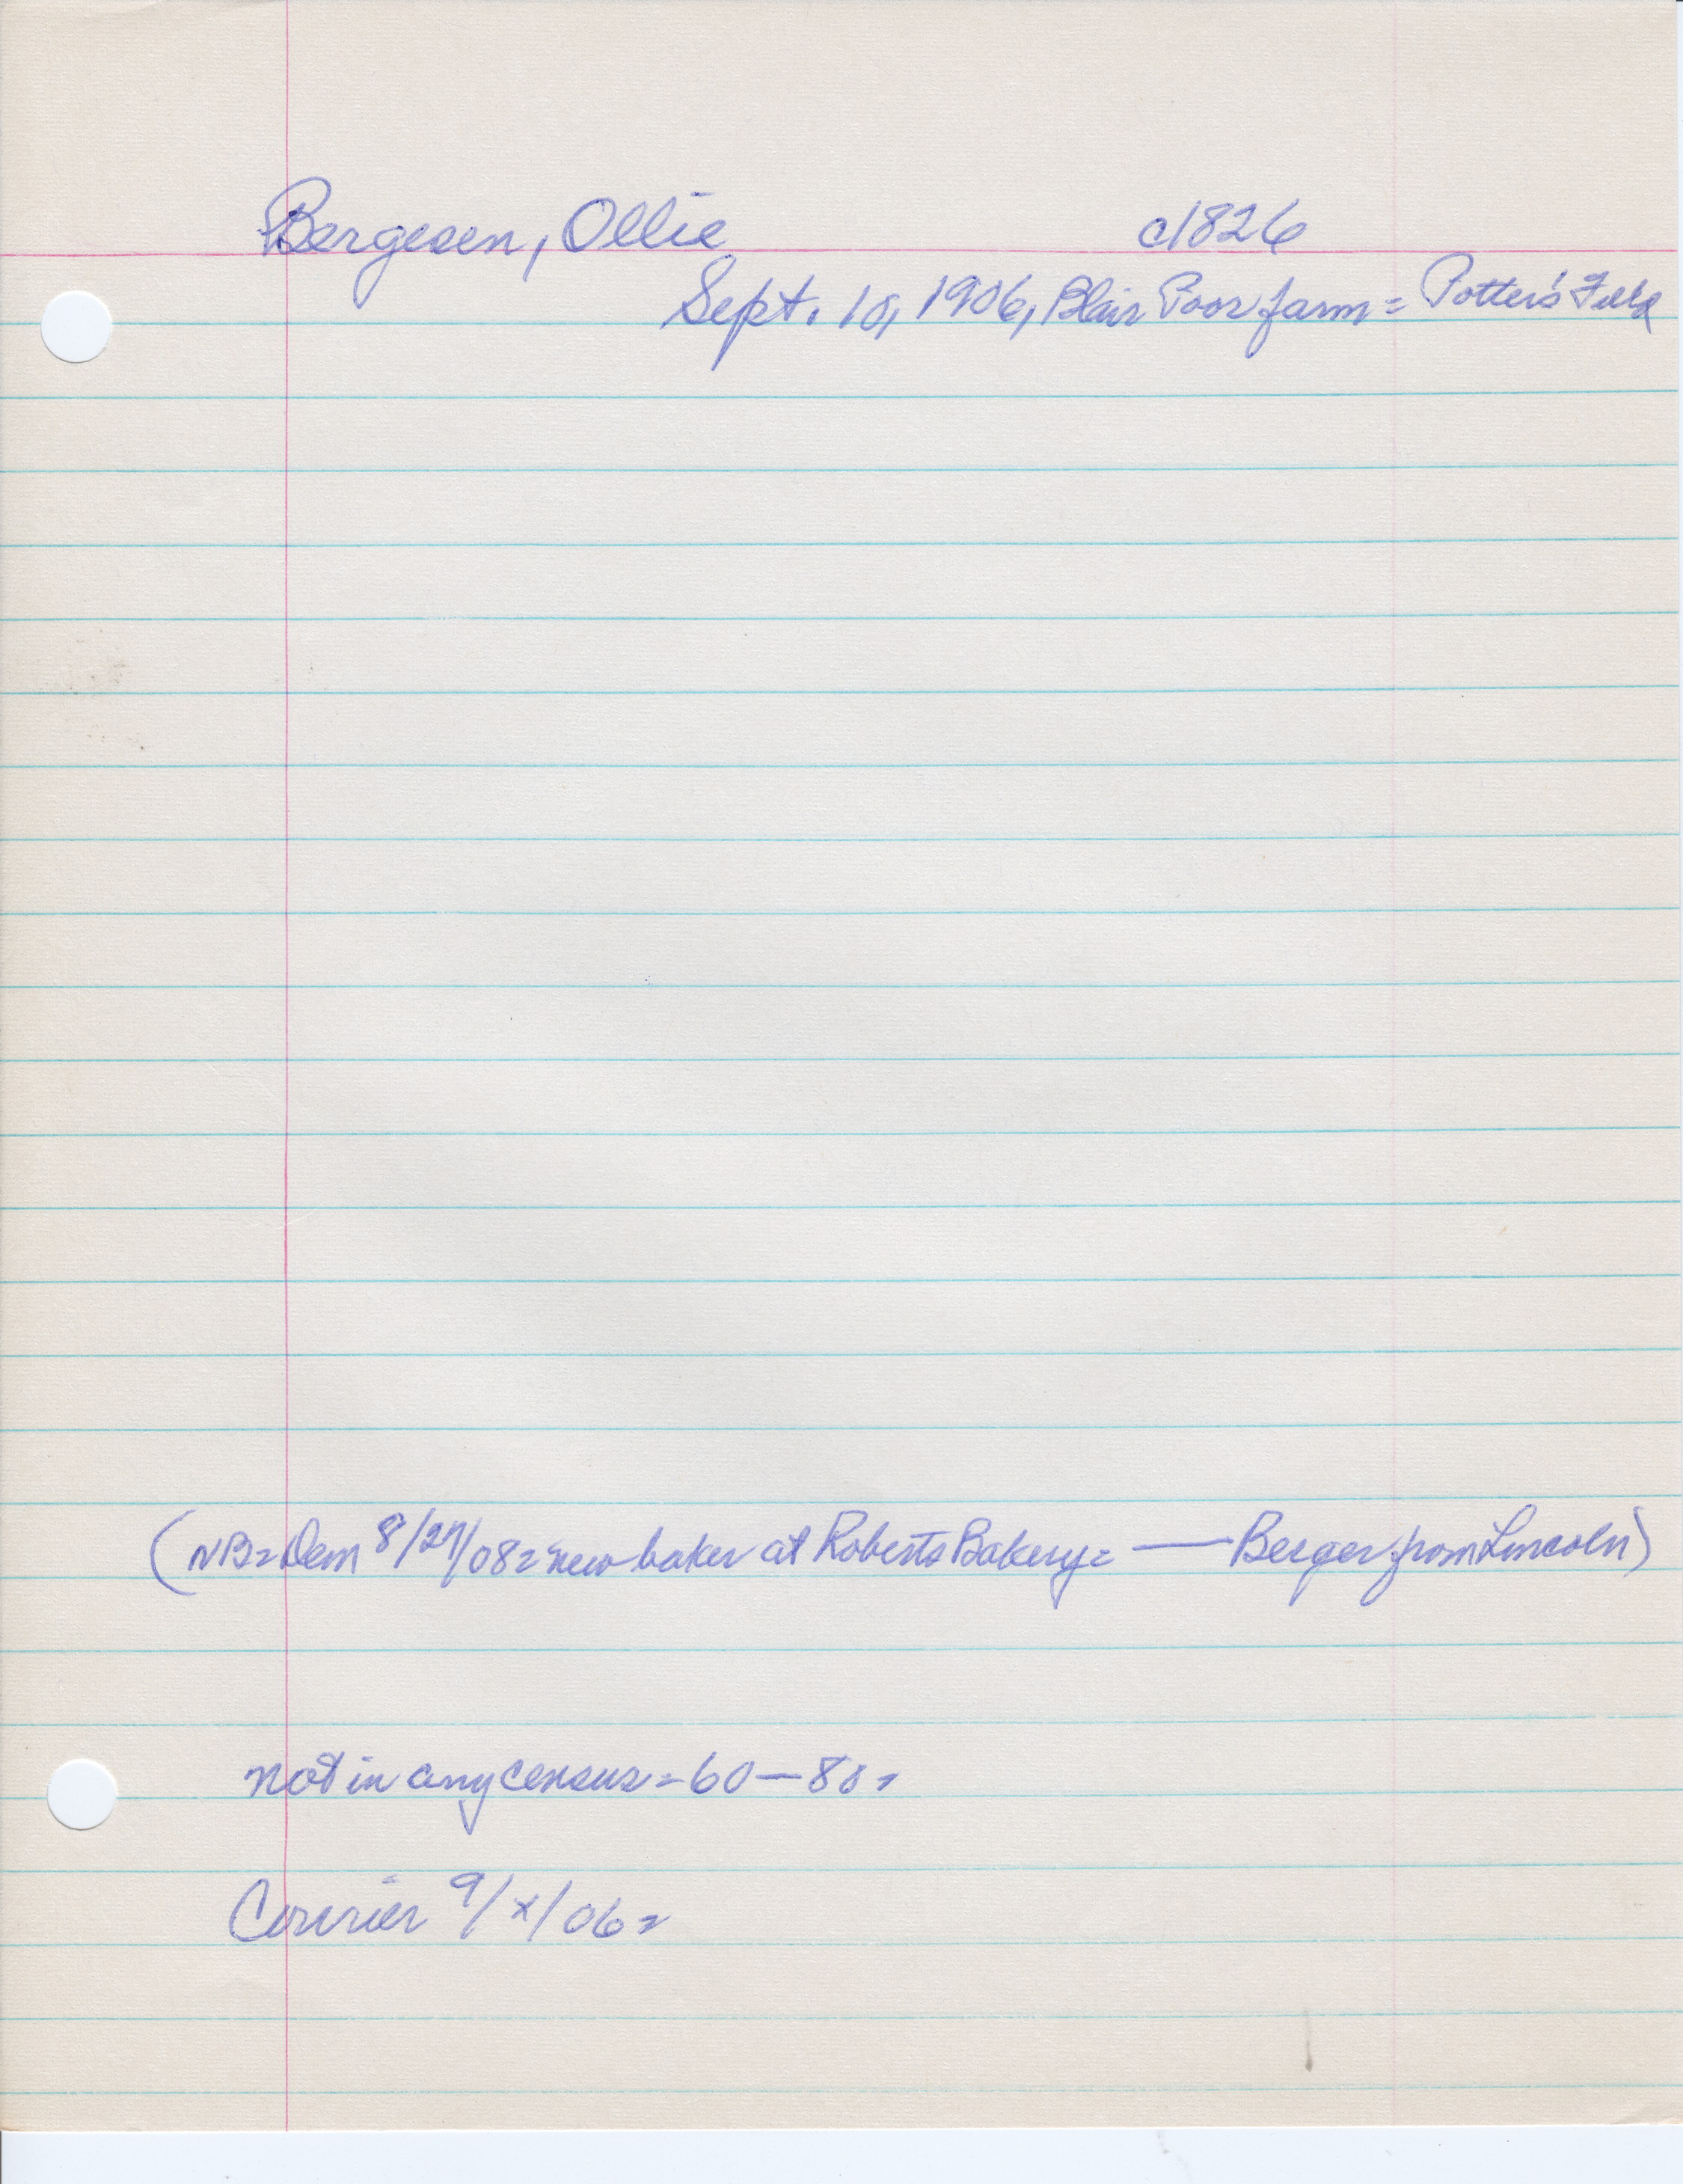 Bergesen, Ollie c1826
Sept. 10, 1906, Blair Poor farm = Potter's Field
(NB= Dem 8/27/08= new baker at Roberts Bakery= — Berger from Lincoln)
not in any census = 60 — 80=
Courier 9/x/06=